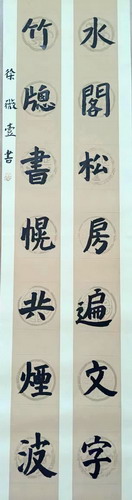 水閣松房遍文字
竹牕書幌共煙波
徐微壹書